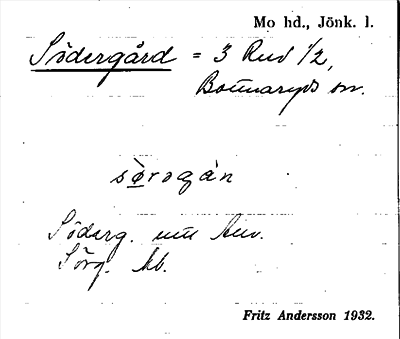 Mo hd., Jönk. l.
Södergård = 3 Rud 1/2,
Bottnaryds sn.
sørogán
Söderg.
Sörg. kb.
Fritz Andersson 1932.